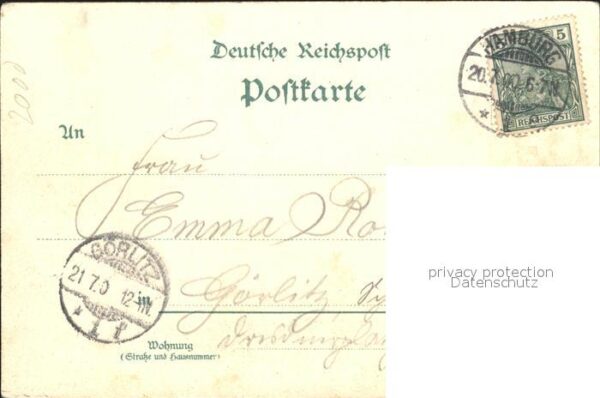 Deutsche Reichspost
Postkarte
5
REICHSPOST
HAMBURG
20.7.00. 6-7 N.
* 1 *
2000
An
Frau
Emma Ro
GÖRLITZ
21 7.0 12-
* 1 f
in Görlitz
privacy protection
Datenschutz
Wohnung
(Straße und Hausnummer)